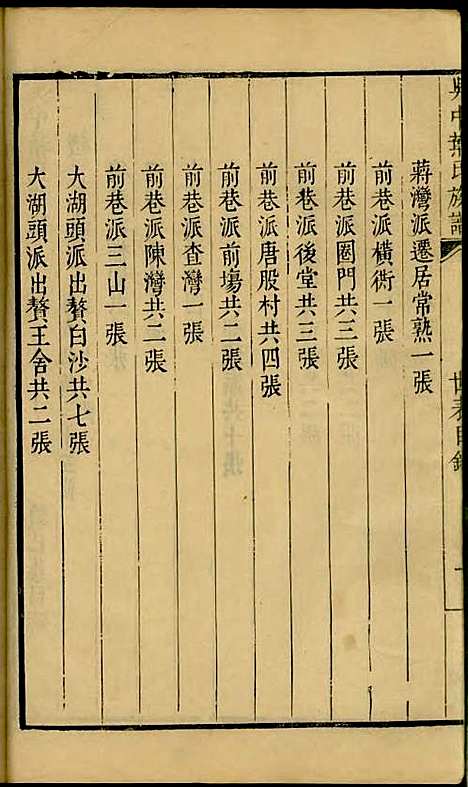 吳中葉氏族譜
世表目錄
蔣灣派遷居常熟一張
前巷派橫衖一張
前巷派圈門共三張
前巷派後堂共三張
前巷派唐股村共四張
前巷派前塲共二張
前巷派查灣一張
前巷派陳灣共二張
前巷派三山一張
大湖頭派出贅白沙共七張
大湖頭派出贅王舍共二張